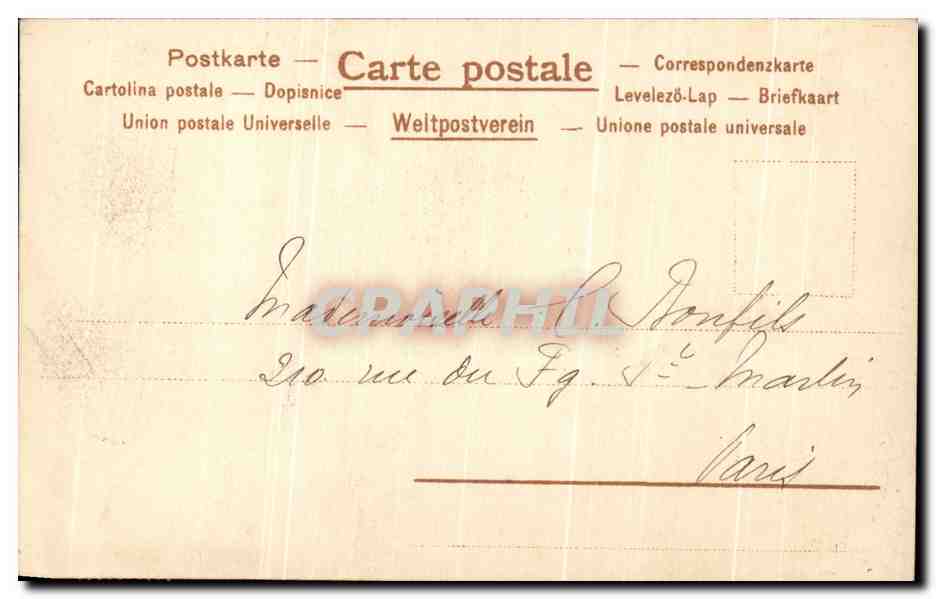 Postkarte — Carte postale — Correspondenzkarte
Cartolina postale — Dopisnice Levelezö-Lap — Briefkaart
Union postale Universelle — Weltpostverein — Unione postale universale
Mademoiselle C. Bonfils
CPAPHIL
210 rue du Fg. St Martin
Paris